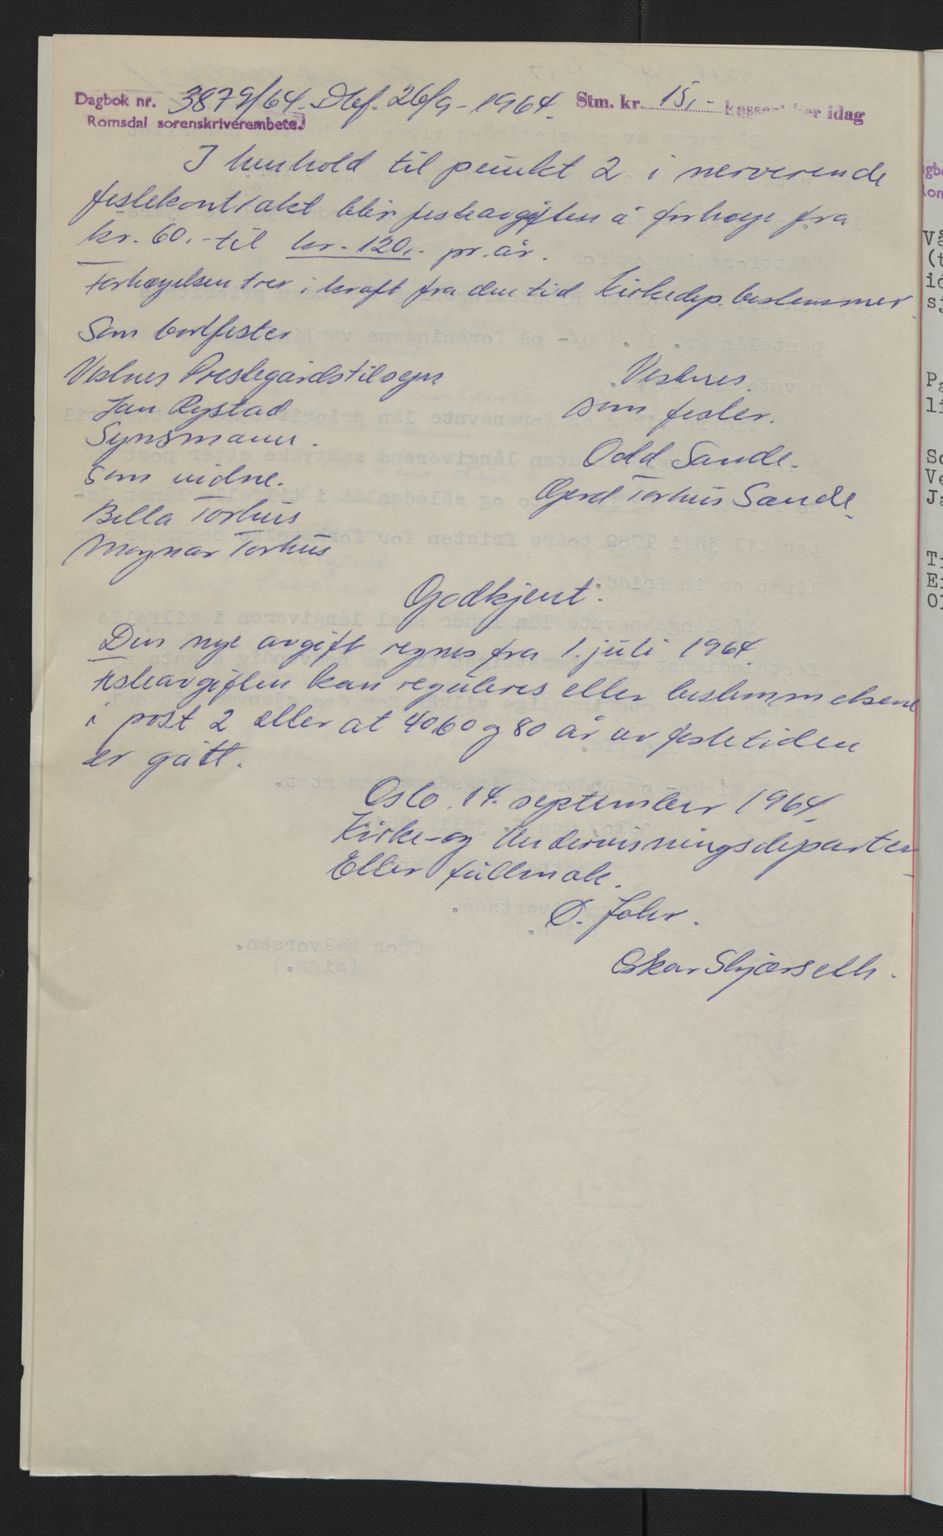 Dagbok nr. 3879/64. Dbf. 26/9-1964. Stm. kr. 15,- kasseres her idag
Romsdal sorenskriverembete.
I henhold til punkt 2 i nerverende
festekontrakt blir festeavgiften å forhøye fra
kr. 60.- til kr. 120.- pr. år.
Forhøyelsen trer i kraft fra den tid Kirkedep. bestemmer.
Som bortfester
Vestnes Prestegårdstilsyn
Vestnes.
Jan Rystad
som fester.
Synsmann.
Odd Sande.
Som vidne.
Gerd Torhus Sande.
Bella Torhus
Magnar Torhus
Godkjent.
Den nye avgift regnes fra 1. juli 1964.
Festeavgiften kan reguleres etter bestemmelsene
i post 2 etter at 40 60 og 80 år av festetiden
er gått.
Oslo, 14. september 1964.
Kirke- og Undervisningsdeparte
Etter fullmakt.
Oskar Skjærseth.